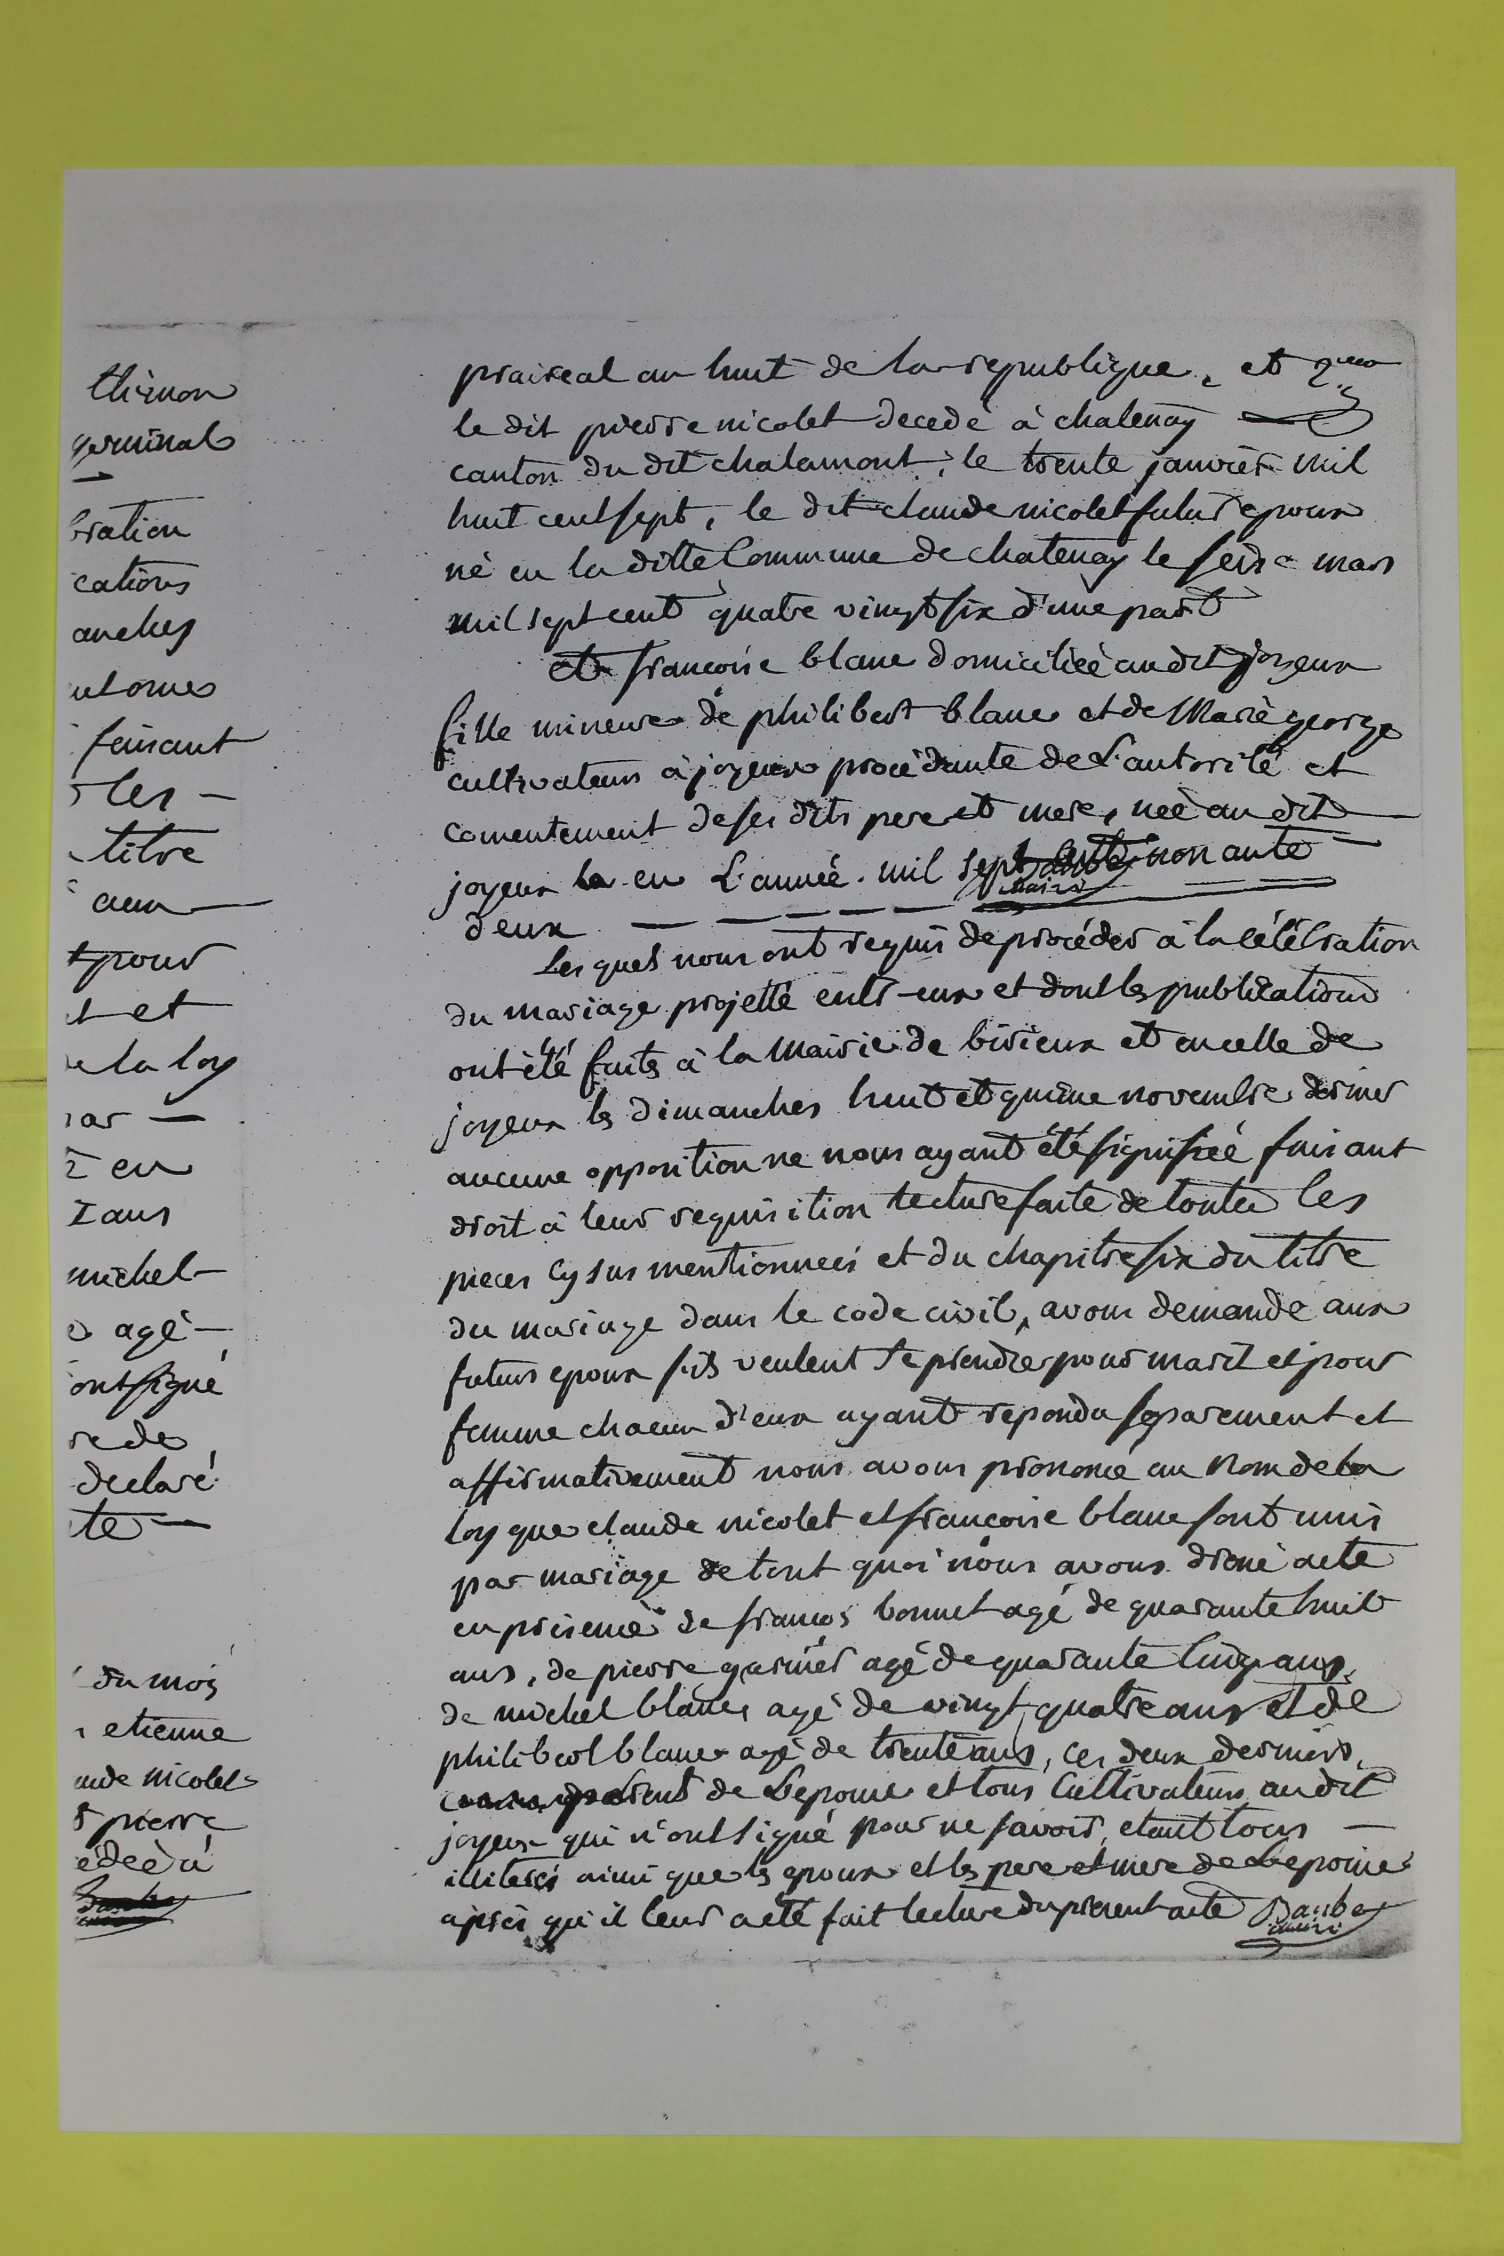 thimon
germinal
bration
cations
anches
utomes
faisant
les -
titre
aux
pour
t et
e la loy
par -
en
ans
michel
agé -
ont signé
re de
declaré
te -
du mois
etienne
aude nicolet
pierre
édeè à
praireal an huit de la republique, et 2.
le dit pierre nicolet decedé à chatenay
canton du dit chalamont, le trente janvier mil
huit cent sept, le dit claude nicolet futur epoux
né en la ditte Commune de chatenay le seize mars
mil sept cent quatre vingt six d'une part
et françoise blanc domiciliée au dit joyeux
fille mineure de philibert blanc et de Marie george
cultivateurs à joyeux procédante de L'autorité et
consentement de ses dits pere et mere, née au dit
joyeux en L'année mil sept cent nonante
deux
Les quels nous ont requis de procéder à la célébration
du mariage projetté entr-eux et dont les publications
ont été faits à la Mairie de birieux et en celle de
joyeux les dimanches huit et quinze novembre dernier
aucune opposition ne nous ayant été signifiée faisant
droit à leur requisition lecture faite de toutes les
pieces cy sus mentionnées et du chapitre six du titre
du mariage dans le code civil, avons demandé aux
futurs epoux s'ils veulent se prendre pour marit et pour
femme chacun d'eux ayant repondu separement et
affirmativement nous avons prononcé au Nom de la
loy que claude nicolet et françoise blanc sont unis
par mariage de tout quoi nous avons dréné acte
en présence de françois bonnet agé de quarante huit
ans, de pierre garnier agé de quarante Cinq ans,
de michel blanc agé de vingt quatre ans et de
philibert blanc agé de trente ans, ces deux derniers
de L'epouse et tous Cultivateurs au dit
joyeux qui n'ont signé pour ne savoir, etant tous -
illiterés ainsi que les epoux et les pere et mere de L'epouse
après qu'il leur a eté fait lecture du present acte Barbe
maire